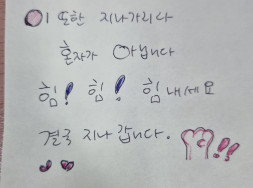 이 또한 지나가리다
혼자가 아닙니다
힘! 힘! 힘내세요
결국 지나갑니다. !!